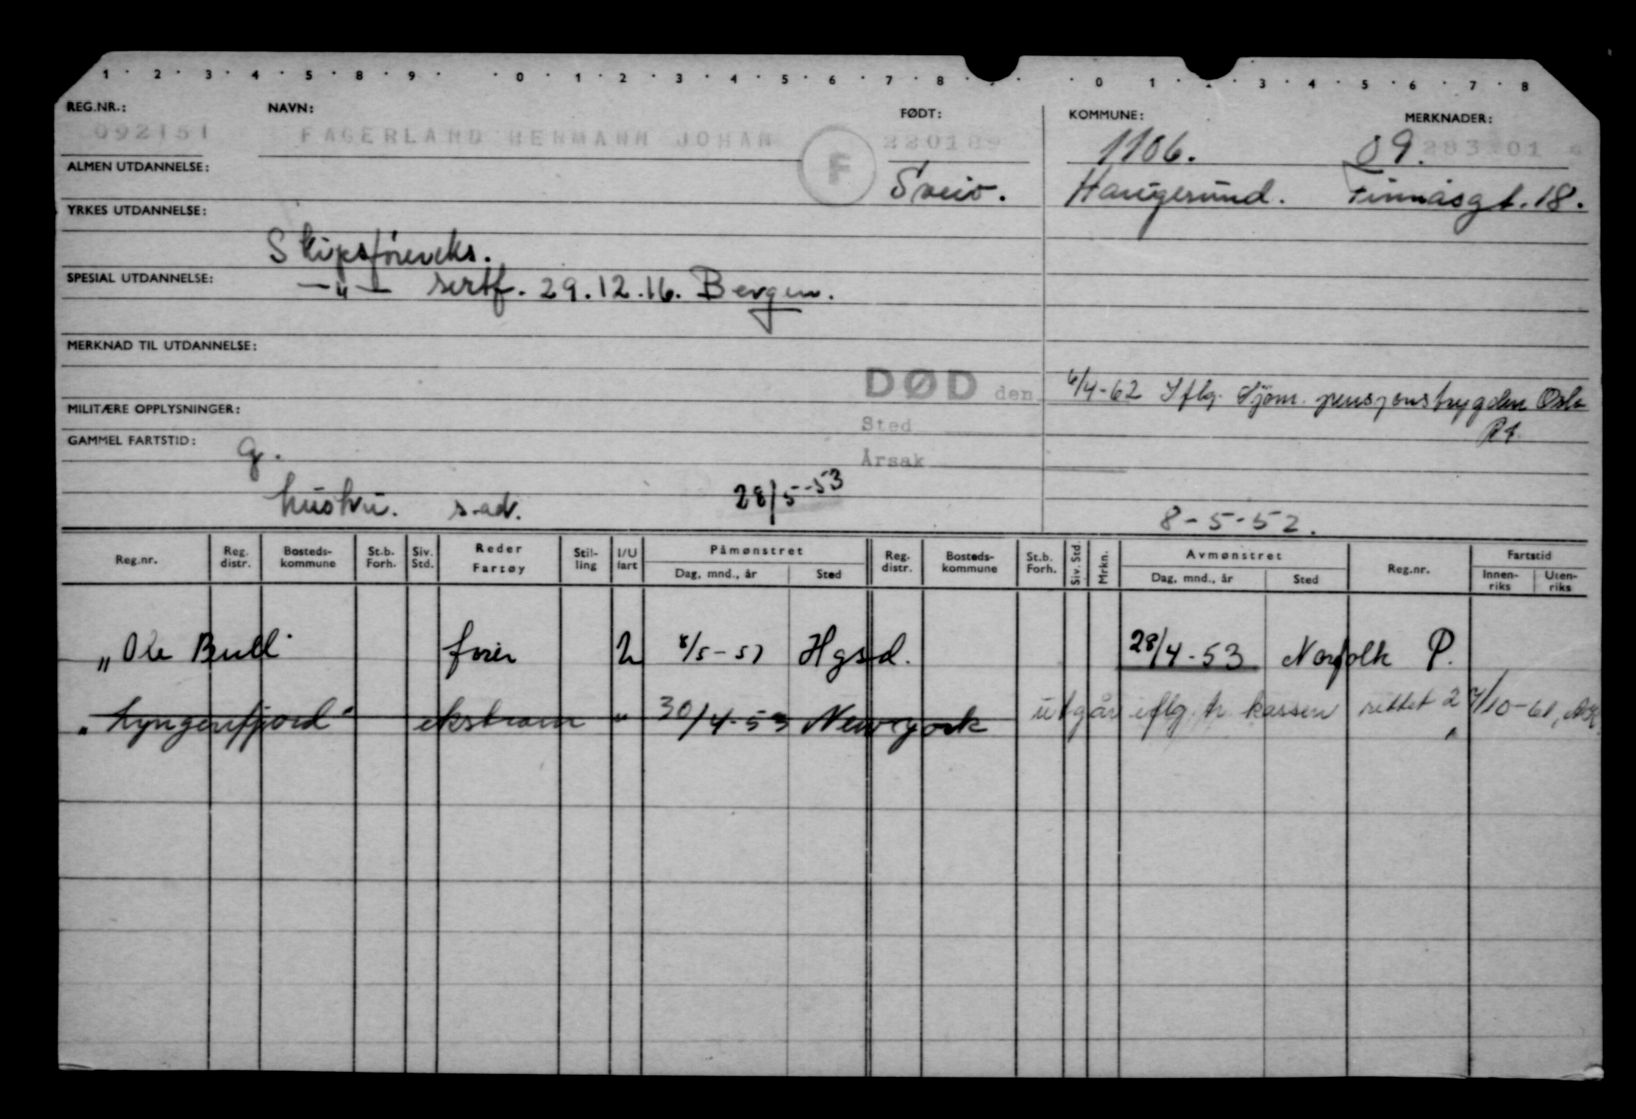 1 · 2 · 3 · 4 · 5 · 8 · 9 · · 0 · 1 · 2 · 3 · 4 · 5 · 6 · 7 · 8 · · 0 1 · · 3 · 4 · 5 · 6 · 7 · 8
REG.NR.: NAVN: FØDT: KOMMUNE: MERKNADER:
092151 FAGERLAND HERMANN JOHAN F 220189 1106. 09.
ALMEN UTDANNELSE: Sveio. Haugesund. Finnåsgt. 18.
YRKES UTDANNELSE:
Skipsförereks.
SPESIAL UTDANNELSE: —"— sertf. 29.12.16. Bergen.
MERKNAD TIL UTDANNELSE:
DØD den 6/4-62 Iflg. Sjöm. pensjonstrygden Oslo
MILITÆRE OPPLYSNINGER: Sted
GAMMEL FARTSTID: g. Årsak
hustru. s.ad. 28/5-53 8-5-52.
Reg.nr. Reg. distr. Bosteds-kommune St.b. Forh. Siv. Std. Reder Fartøy Stil-ling I/U fart Påmønstret Dag, mnd., år Sted Reg. distr. Bosteds-kommune St.b. Forh. Siv. Std. Mrkn. Avmønstret Dag, mnd., år Sted Reg.nr. Fartstid Innen-riks Uten-riks
"Ole Bull" 2 8/5-52 Hgsd. 28/4-53 Norfolk P.
"Lyngenfjord" ekstram " 30/4-53 New York utgår iflg. tr. kassen rettet 24/10-61,